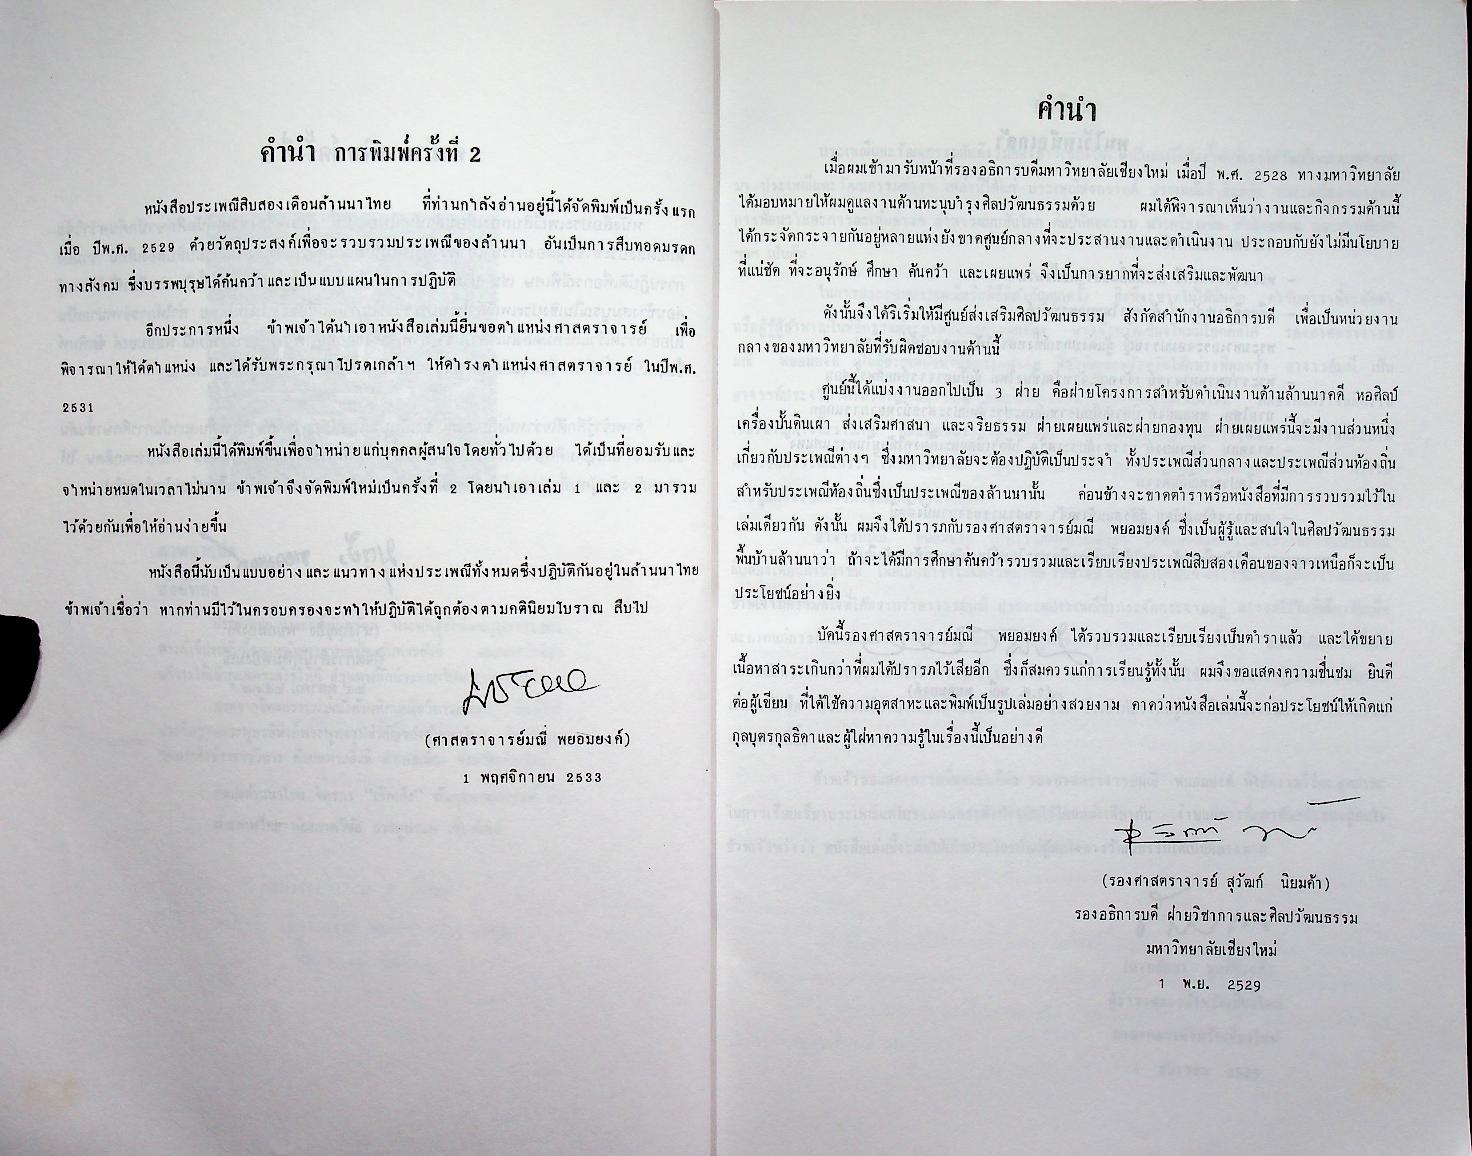 คำนำ การพิมพ์ครั้งที่ 2
หนังสือประเพณีสิบสองเดือนล้านนาไทย ที่ท่านกำลังอ่านอยู่นี้ได้จัดพิมพ์เป็นครั้งแรก
เมื่อ ปีพ.ศ. 2529 ด้วยวัตถุประสงค์เพื่อจะรวบรวมประเพณีของล้านนา อันเป็นการสืบทอดมรดก
ทางสังคม ซึ่งบรรพบุรุษได้ค้นคว้าและเป็นแบบแผนในการปฏิบัติ
อีกประการหนึ่ง ข้าพเจ้าได้นำเอาหนังสือเล่มนี้ยื่นขอตำแหน่งศาสตราจารย์ เพื่อ
พิจารณาให้ได้ตำแหน่ง และได้รับพระกรุณาโปรดเกล้าฯ ให้ดำรงตำแหน่งศาสตราจารย์ ในปีพ.ศ.
2531
หนังสือเล่มนี้ได้พิมพ์ขึ้นเพื่อจำหน่ายแก่บุคคลผู้สนใจโดยทั่วไปด้วย ได้เป็นที่ยอมรับและ
จำหน่ายหมดในเวลาไม่นาน ข้าพเจ้าจึงจัดพิมพ์ใหม่เป็นครั้งที่ 2 โดยนำเอาเล่ม 1 และ 2 มารวม
ไว้ด้วยกันเพื่อให้อ่านง่ายขึ้น
หนังสือนี้นับเป็นแบบอย่าง และแนวทางแห่งประเพณีทั้งหมดซึ่งปฏิบัติกันอยู่ในล้านนาไทย
ข้าพเจ้าเชื่อว่า หากท่านมีไว้ในครอบครองจะทำให้ปฏิบัติได้ถูกต้องตามคตินิยมโบราณ สืบไป
(ศาสตราจารย์มณี พยอมยงค์)
1 พฤศจิกายน 2533
คำนำ
เมื่อผมเข้ามารับหน้าที่รองอธิการบดีมหาวิทยาลัยเชียงใหม่ เมื่อปี พ.ศ. 2528 ทางมหาวิทยาลัย
ได้มอบหมายให้ผมดูแลงานด้านทะนุบำรุงศิลปวัฒนธรรมด้วย ผมได้พิจารณาเห็นว่างานและกิจกรรมด้านนี้
ได้กระจัดกระจายกันอยู่หลายแห่งยังขาดศูนย์กลางที่จะประสานงานและดำเนินงาน ประกอบกับยังไม่มีนโยบาย
ที่แน่ชัด ที่จะอนุรักษ์ ศึกษา ค้นคว้า และเผยแพร่ จึงเป็นการยากที่จะส่งเสริมและพัฒนา
ดังนั้นจึงได้ริเริ่มให้มีศูนย์ส่งเสริมศิลปวัฒนธรรม สังกัดสำนักงานอธิการบดี เพื่อเป็นหน่วยงาน
กลางของมหาวิทยาลัยที่รับผิดชอบงานด้านนี้
ศูนย์นี้ได้แบ่งงานออกไปเป็น 3 ฝ่าย คือฝ่ายโครงการสำหรับดำเนินงานด้านล้านนาคดี หอศิลป์
เครื่องปั้นดินเผา ส่งเสริมศาสนา และจริยธรรม ฝ่ายเผยแพร่และฝ่ายกองทุน ฝ่ายเผยแพร่นี้จะมีงานส่วนหนึ่ง
เกี่ยวกับประเพณีต่างๆ ซึ่งมหาวิทยาลัยจะต้องปฏิบัติเป็นประจำ ทั้งประเพณีส่วนกลางและประเพณีส่วนท้องถิ่น
สำหรับประเพณีท้องถิ่นซึ่งเป็นประเพณีของล้านนานั้น ค่อนข้างจะขาดตำราหรือหนังสือที่มีการรวบรวมไว้ใน
เล่มเดียวกัน ดังนั้น ผมจึงได้ปรารภกับรองศาสตราจารย์มณี พยอมยงค์ ซึ่งเป็นผู้รู้และสนใจในศิลปวัฒนธรรม
พื้นบ้านล้านนาว่า ถ้าจะได้มีการศึกษาค้นคว้ารวบรวมและเรียบเรียงประเพณีสิบสองเดือนของจาวเหนือก็จะเป็น
ประโยชน์อย่างยิ่ง
บัดนี้รองศาสตราจารย์มณี พยอมยงค์ ได้รวบรวมและเรียบเรียงเป็นตำราแล้ว และได้ขยาย
เนื้อหาสาระเกินกว่าที่ผมได้ปรารภไว้เสียอีก ซึ่งก็สมควรแก่การเรียนรู้ทั้งนั้น ผมจึงขอแสดงความชื่นชม ยินดี
ต่อผู้เขียน ที่ได้ใช้ความอุตสาหะและพิมพ์เป็นรูปเล่มอย่างสวยงาม คาดว่าหนังสือเล่มนี้จะก่อประโยชน์ให้เกิดแก่
กุลบุตรกุลธิดาและผู้ใฝ่หาความรู้ในเรื่องนี้เป็นอย่างดี
(รองศาสตราจารย์ สุวัฒก์ นิยมค้า)
รองอธิการบดี ฝ่ายวิชาการและศิลปวัฒนธรรม
มหาวิทยาลัยเชียงใหม่
1 พ.ย. 2529